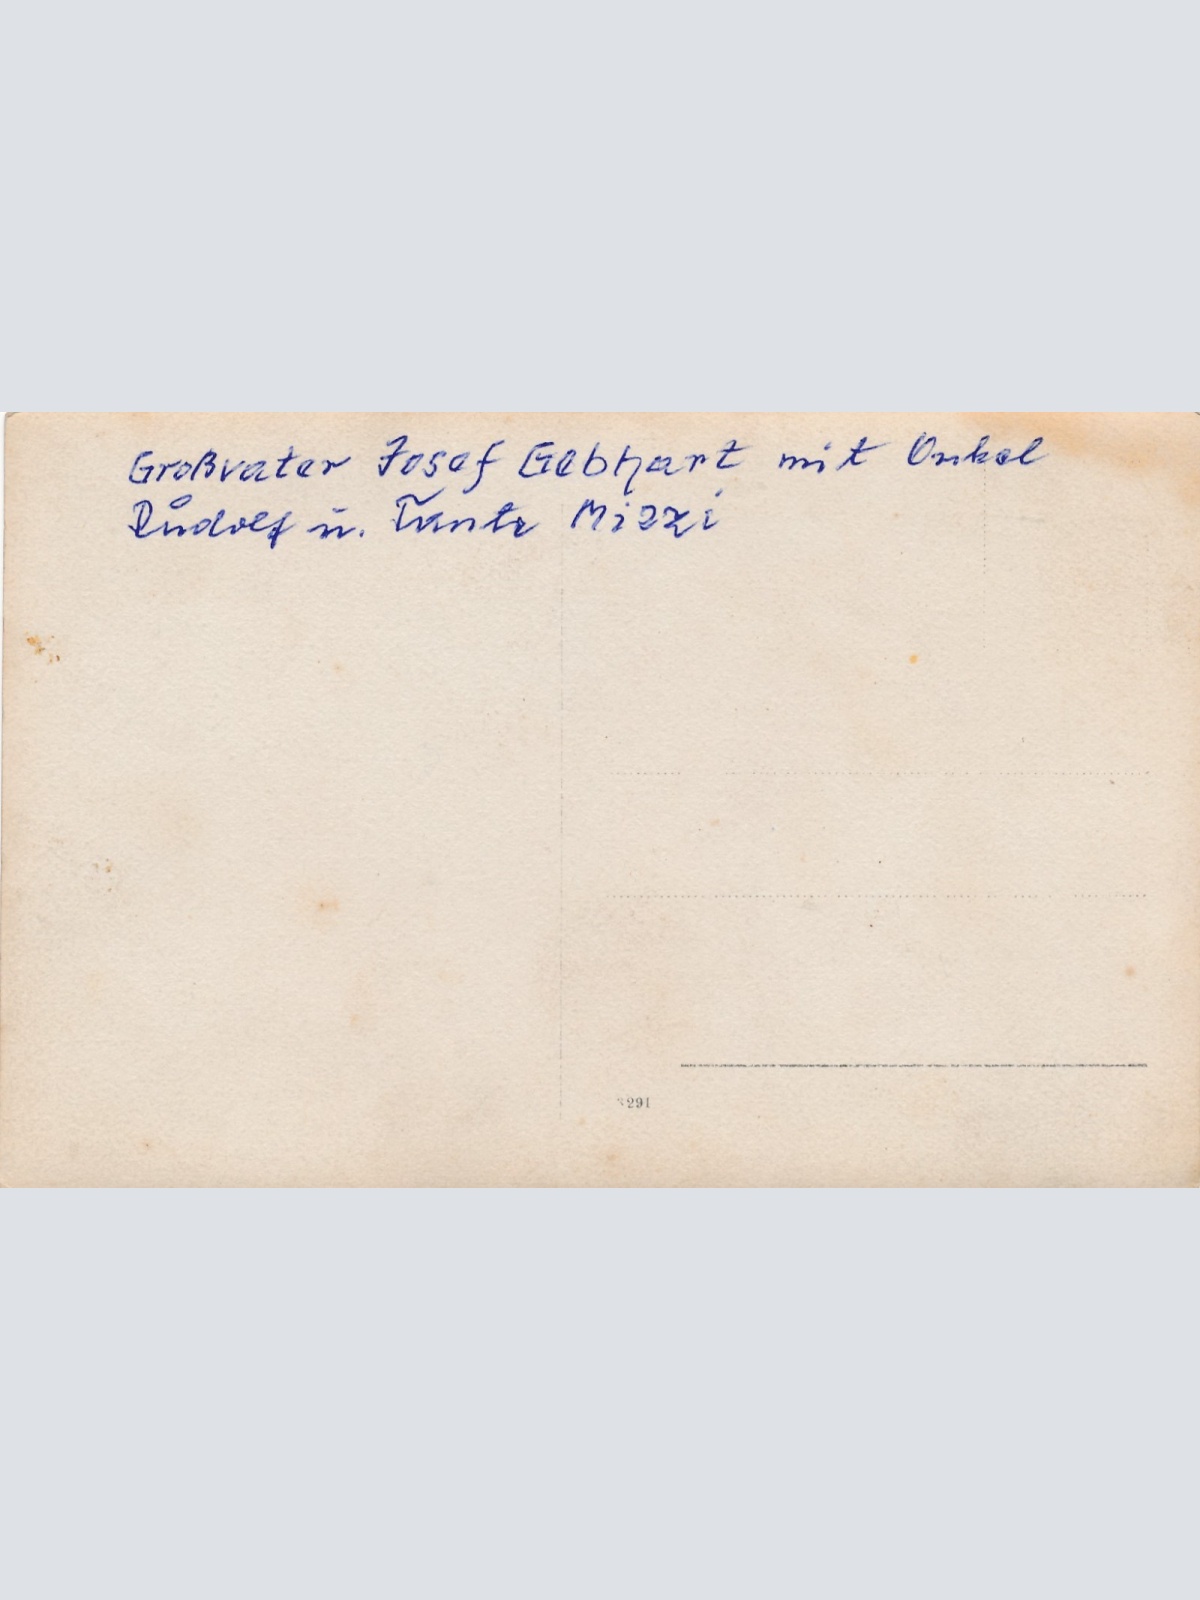 Großvater Josef Gebhart mit Onkel
Rudolf u. Tante Mizzi
291